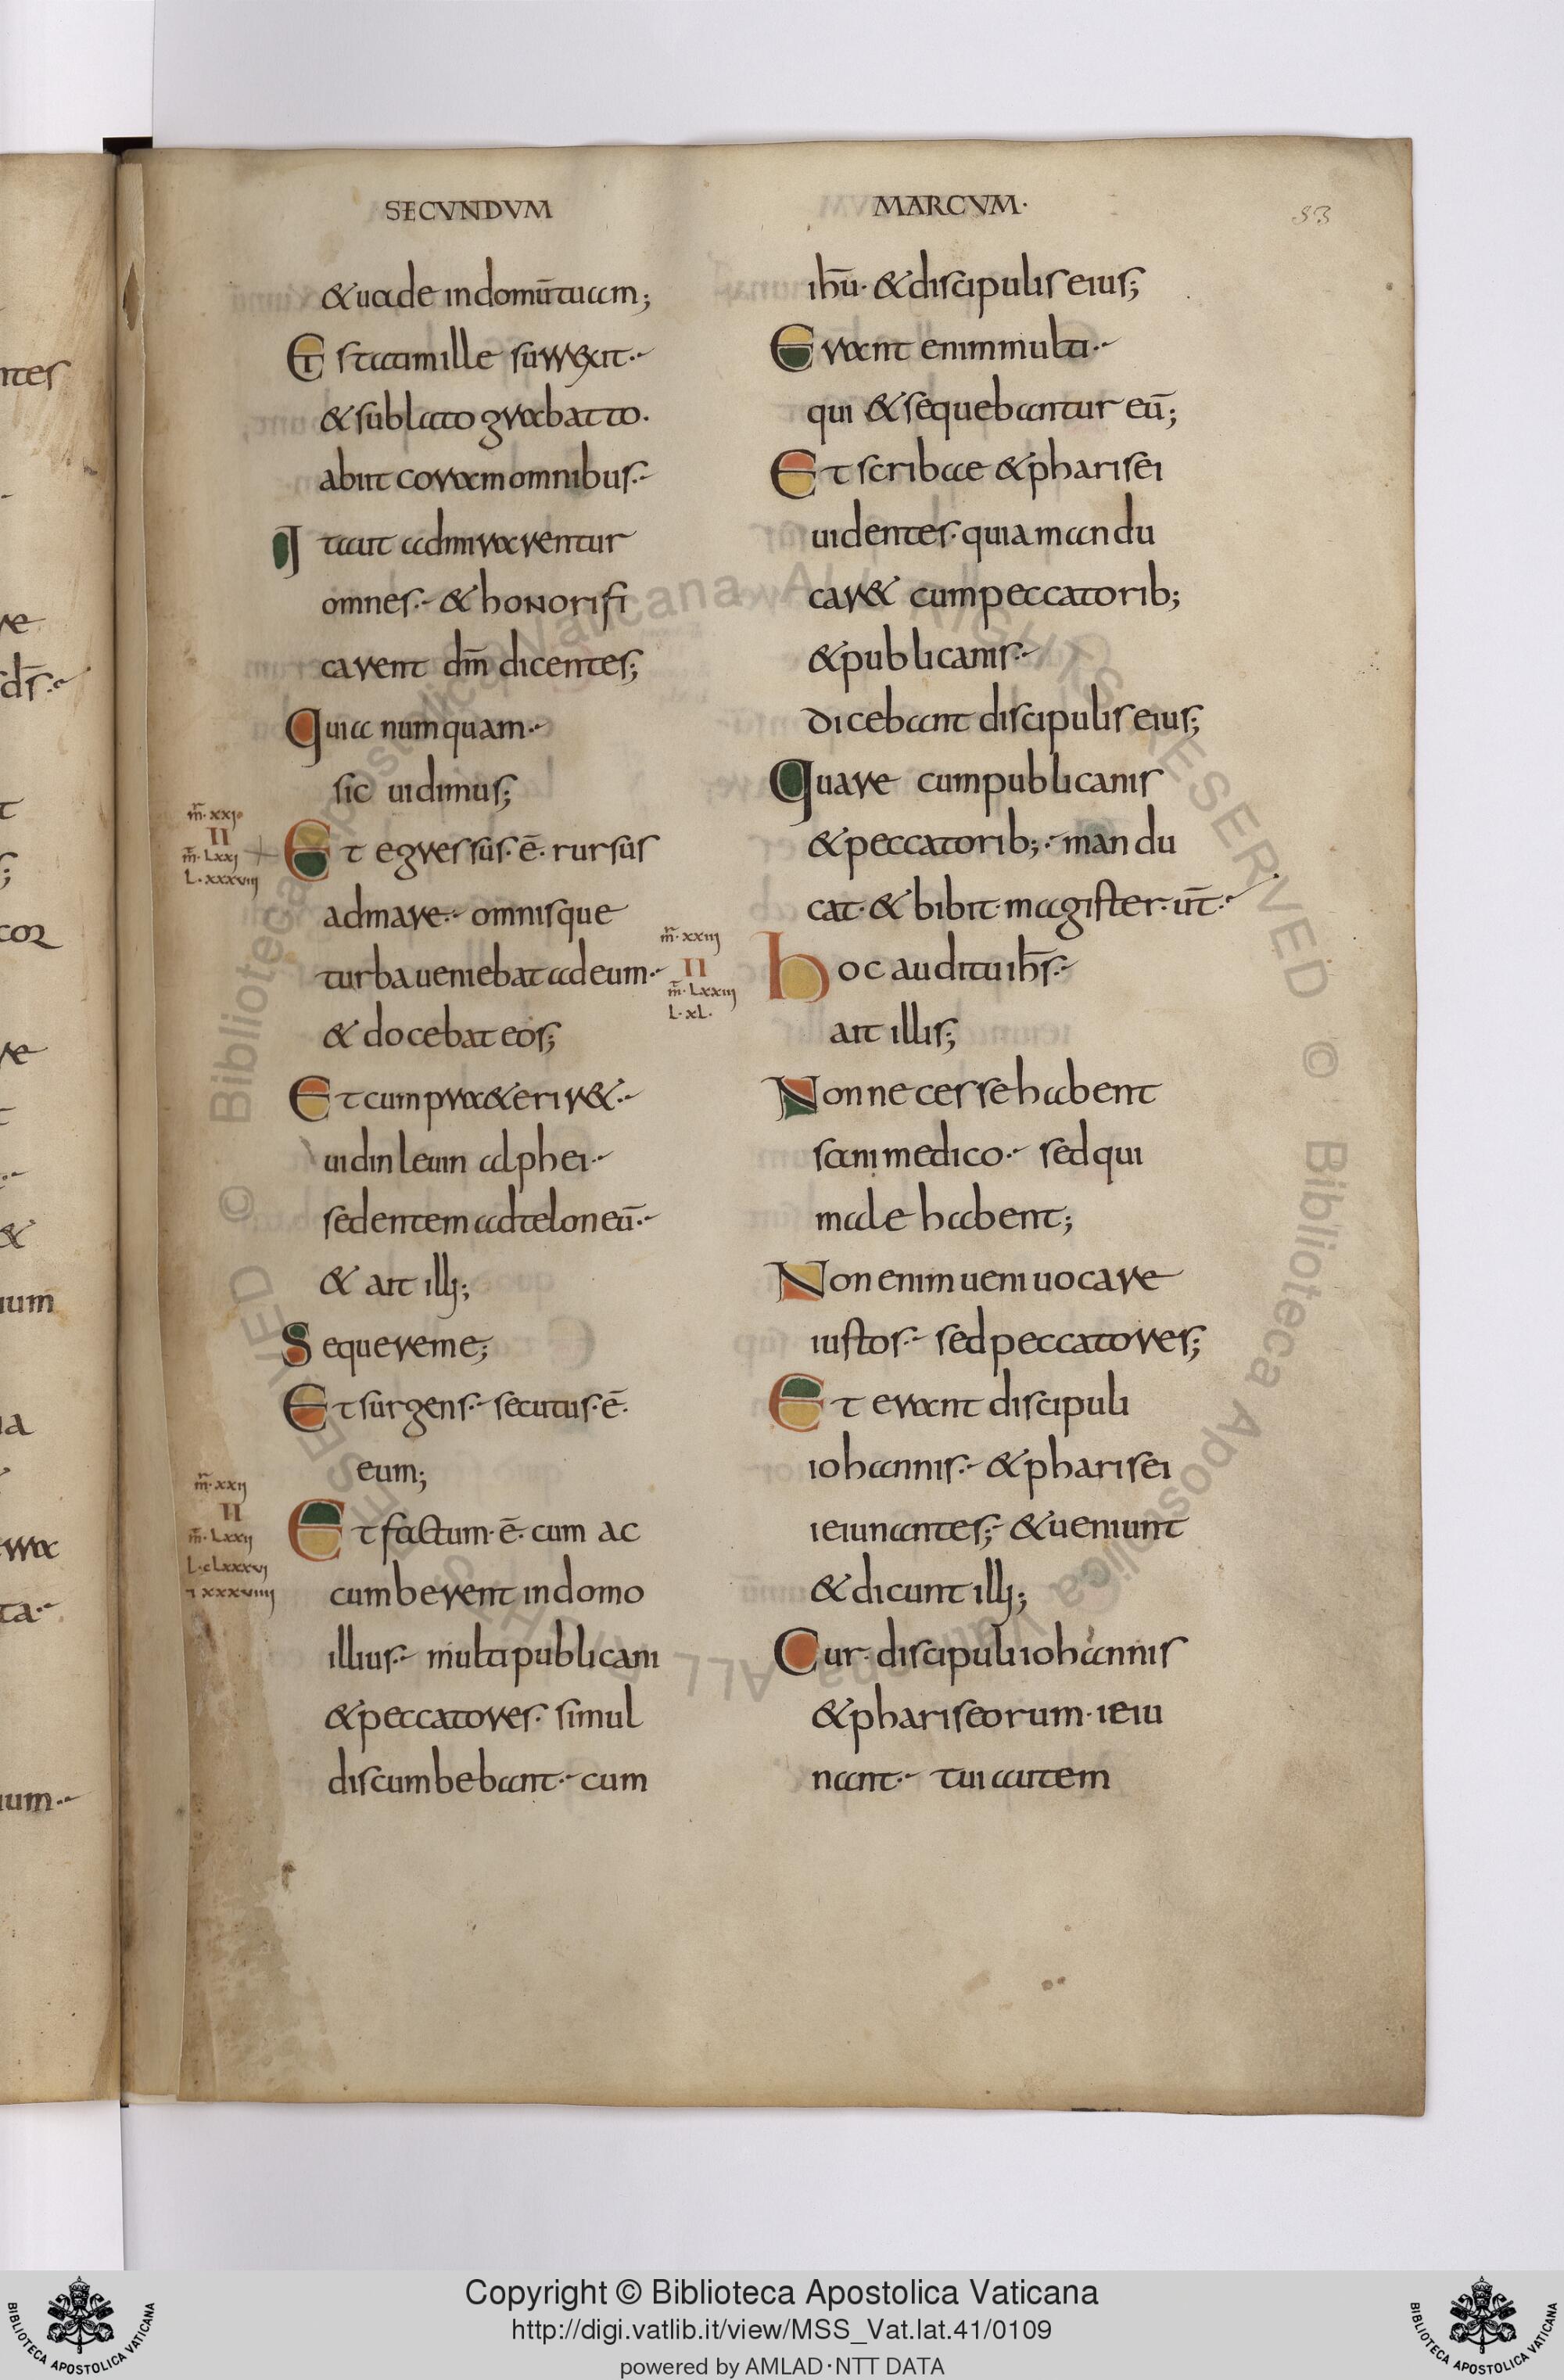 SECUNDUM MARCUM·
53
&uade indomūtuam;
Et statimille surrexit·
& sublato grabatto.
abiit coram omnibus·
Ita ut admirarentur
omnes· & honorifi
carent dm̄ dicentes;
Quia numquam·
sic uidimus;
m̄·xxi
II
m̄·Lxxi
L·xxxviii
Et egressus·ē· rursus
admare· omnisque
turba ueniebat adeum·
& docebat eos;
Et cum pr&erir&·
uidin leuin alphei·
sedentem adteloneū·
& ait illi;
Sequereme;
Et surgens· secutus·ē·
eum;
m̄·xxii
II
m̄·Lxxii
L·cLxxxvi
Et factum·ē· cum ac
cumberent indomo
illius· multipublicani
&peccatores· simul
discumbebant· cum
ihū· &discipulis eius;
Erant enimmulti·
qui &sequebantur eū;
Et scribae &pharisei
uidentes· quia mandu
car& cumpeccatorib;
&publicanis·
dicebant discipulis eius;
Quare cumpublicanis
&peccatorib;· mandu
cat· & bibit· magister·ur̄·
m̄·xxiii
II
m̄·Lxxiii
L·xL·
hoc audituihs̄·
ait illis;
Non necesse habent
sani medico· sed qui
male habent;
Non enim ueni uocare
iustos· sed peccatores;
Et erant discipuli
iohannis· &pharisei
ieiunantes;· &ueniunt
& dicunt illi;
Cur· discipuli iohannis
&phariseorum· ieiu
nant· tui autem
Copyright © Biblioteca Apostolica Vaticana
http://digi.vatlib.it/view/MSS_Vat.lat.41/0109
powered by AMLAD·NTT DATA